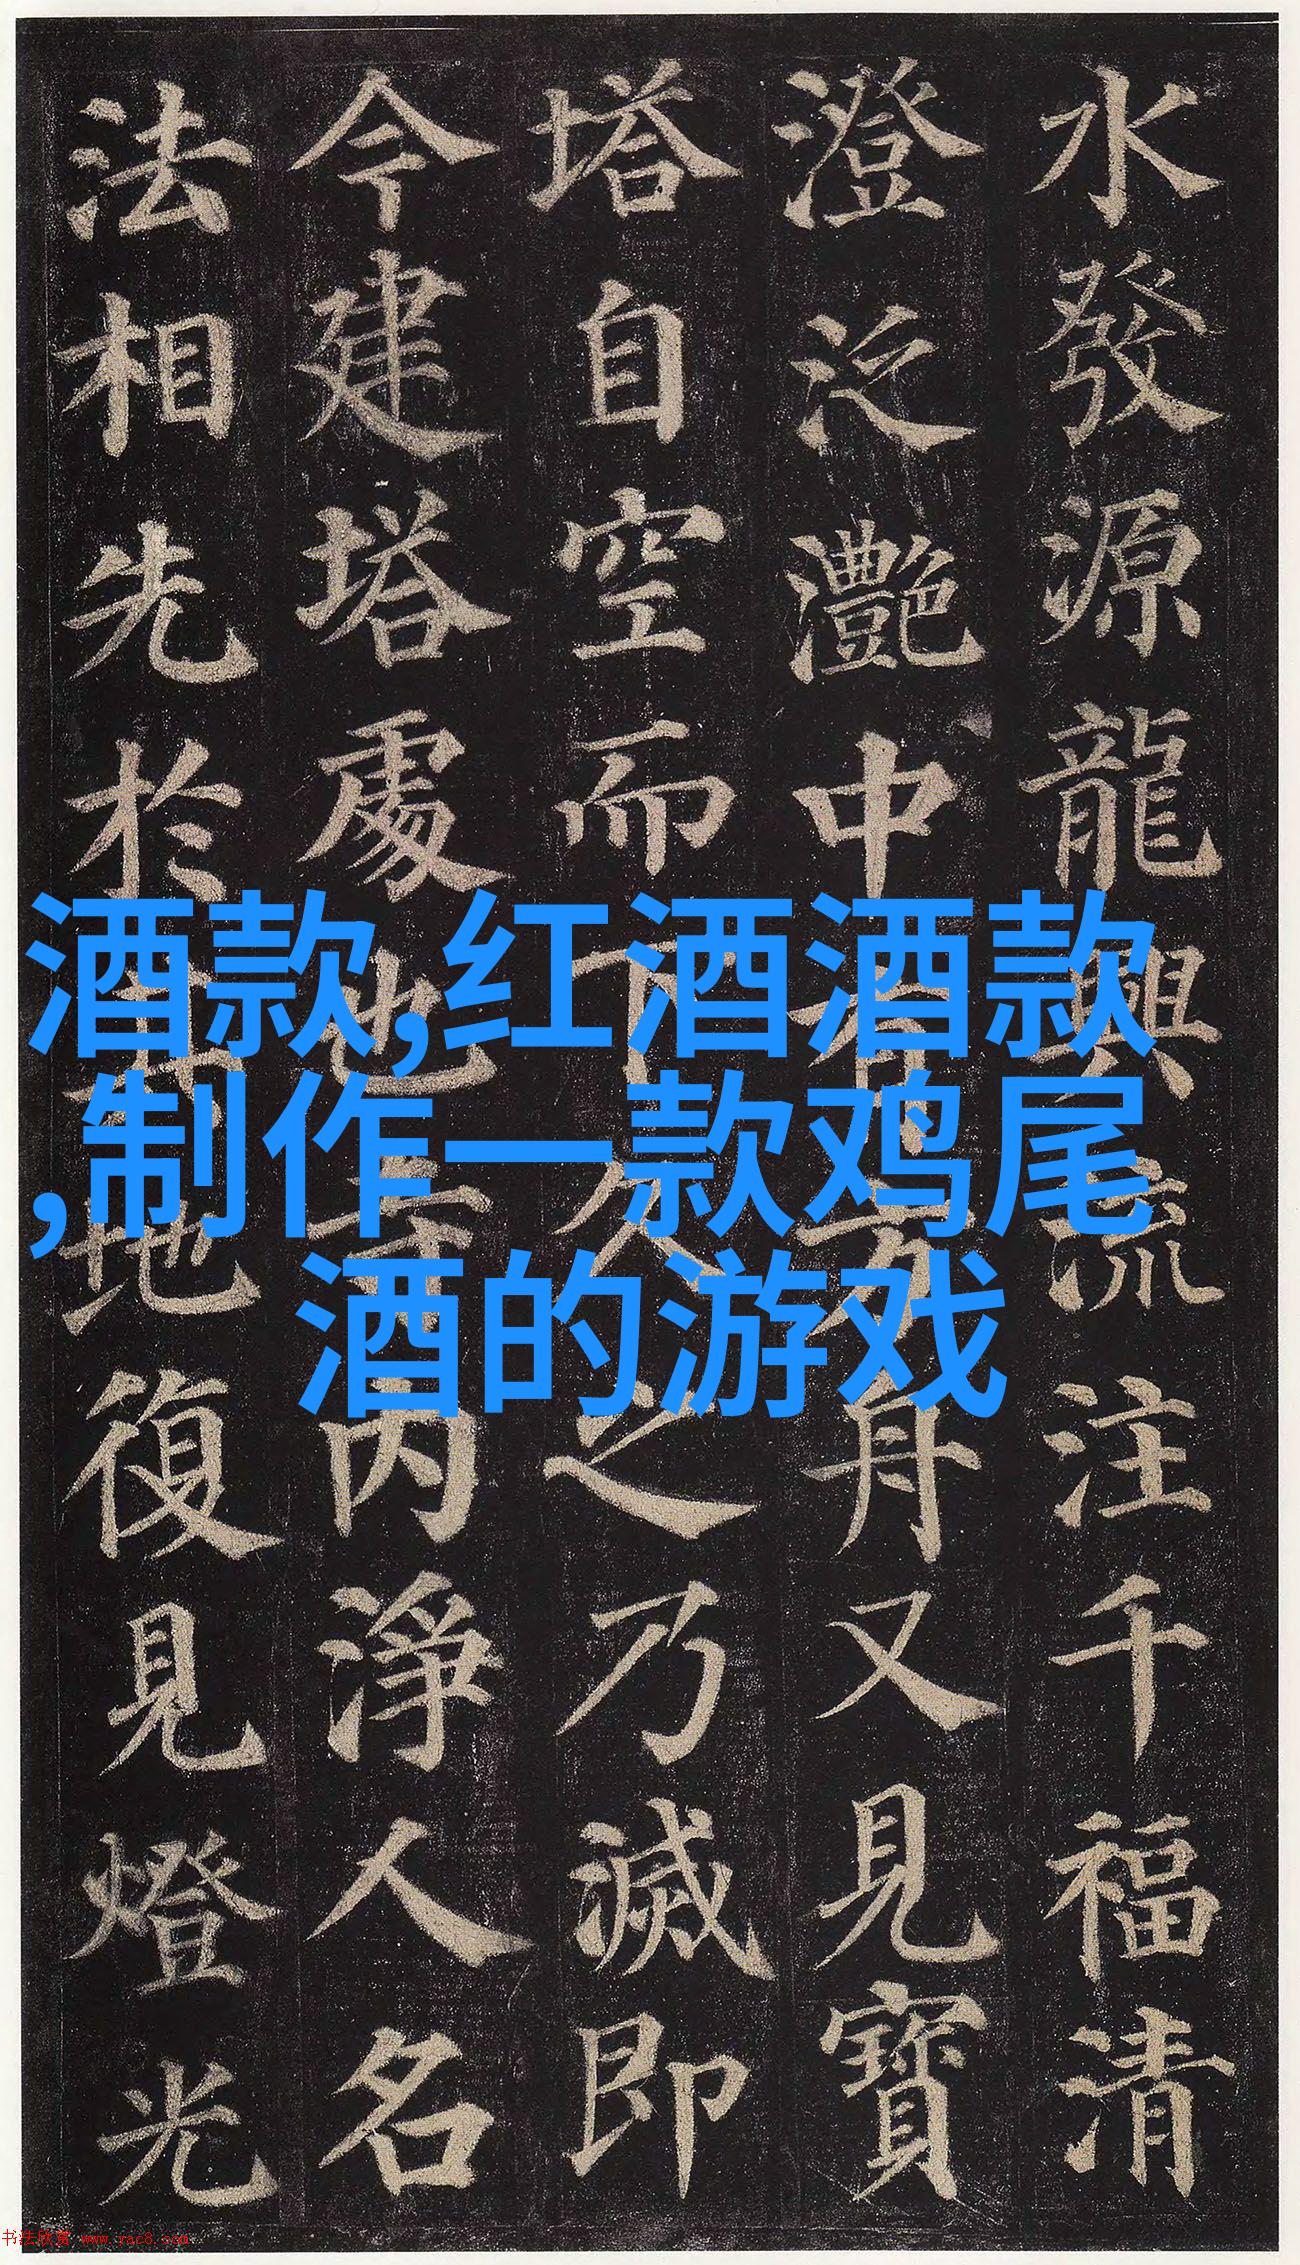 水發源龍興流注千福清
澄泛灧中有方舟又見寶
塔自空而下久之乃滅即
今建塔處也寺內淨人名
法相先於其地復見燈光
酒款,红酒酒款
,制作一款鸡尾
酒的游戏
书法欣赏 www.yac8.com